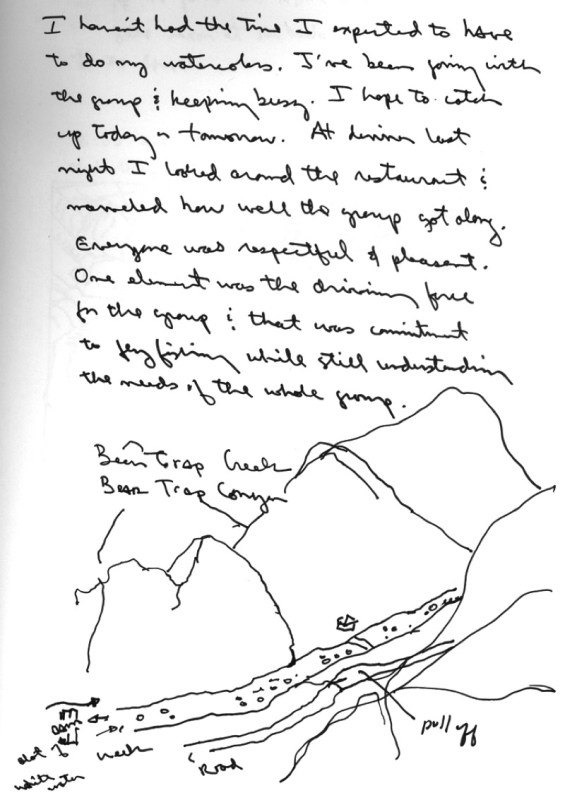 I haven't had the time I expected to have
to do my watercolors. I've been going with
the group & keeping busy. I hope to catch
up today or tomorrow. At dinner last
night I looked around the restaurant &
marveled how well the group got along.
Everyone was respectful & pleasant.
One element was the driving force
for the group & that was commitment
to fly fishing while still understanding
the needs of the whole group.
Bear Trap Creek
Bear Trap Canyon
pull off
Road
creek
alot of
white water